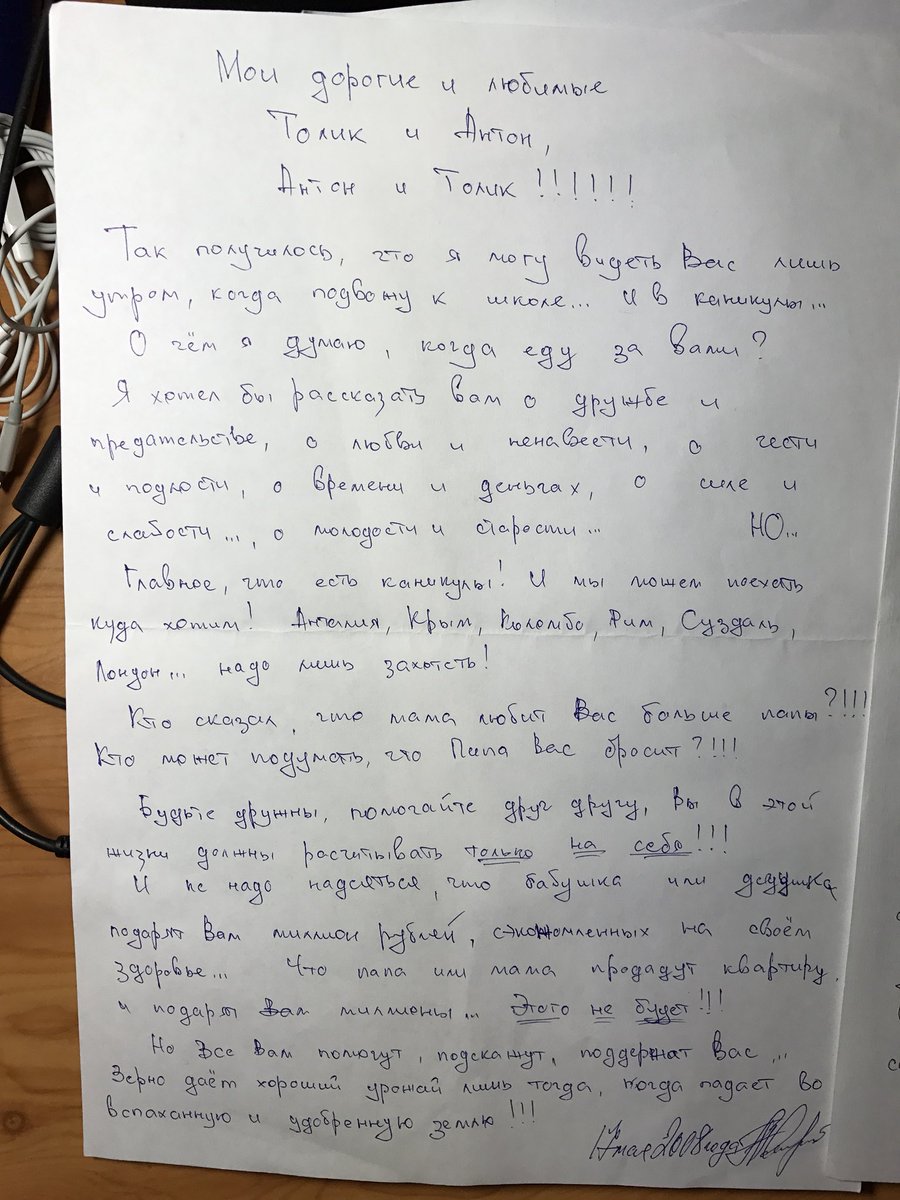 Мои дорогие и любимые
Толик и Антон,
Антон и Толик!!!!!!
Так получилось, что я могу видеть Вас лишь
утром, когда подвожу к школе... И в каникулы...
О чём я думаю, когда еду за вами?
Я хотел бы рассказать вам о дружбе и
предательстве, о любви и ненавести, о чести
и подлости, о времени и деньгах, о силе и
слабости..., о молодости и старости... НО...
Главное, что есть каникулы! И мы можем поехать
куда хотим! Анталия, Крым, Коломбо, Рим, Суздаль,
Лондон... надо лишь захотеть!
Кто сказал, что мама любит Вас больше папы?!!!
Кто может подумать, что Папа Вас бросит?!!!
Будьте дружны, помогайте друг другу, Вы в этой
жизни должны расчитывать только на себя!!!
И не надо надеяться, что бабушка или дедушка
подарят Вам миллион рублей, сэкономленных на своём
здоровье... Что папа или мама продадут квартиру
и подарят Вам миллионы... Этого не будет!!!
Но Все Вам помогут, подскажут, поддержат Вас...
Зерно даёт хороший урожай лишь тогда, когда падает во
вспаханную и удобренную землю!!!
17 мая 2008 года